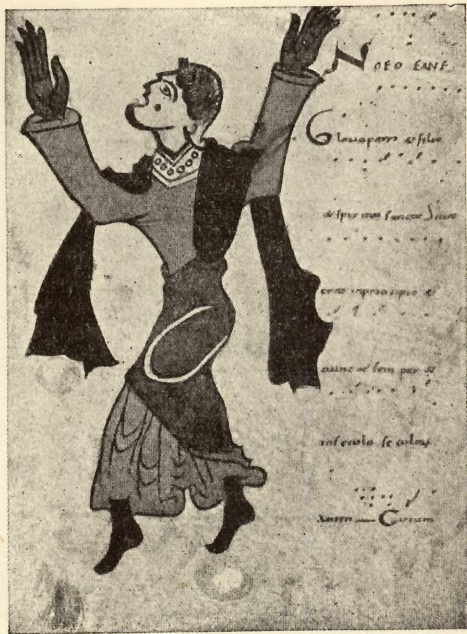 NOEOEANE
Gloria patri & filio
& spiritui sancto Sicut
erat inprincipio &
nunc & sem per &
insecula se culoru
amen